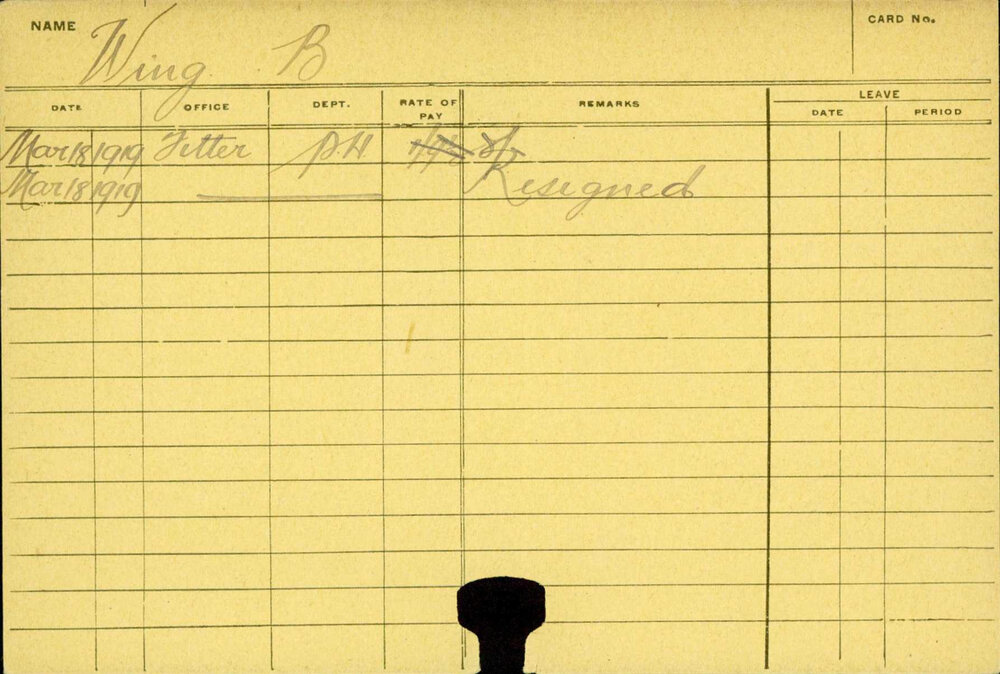 NAME Wing B CARD No.
DATE OFFICE DEPT. RATE OF PAY REMARKS LEAVE
DATE PERIOD
Mar 18 1919 Fitter PH
Mar 18 1919 Resigned